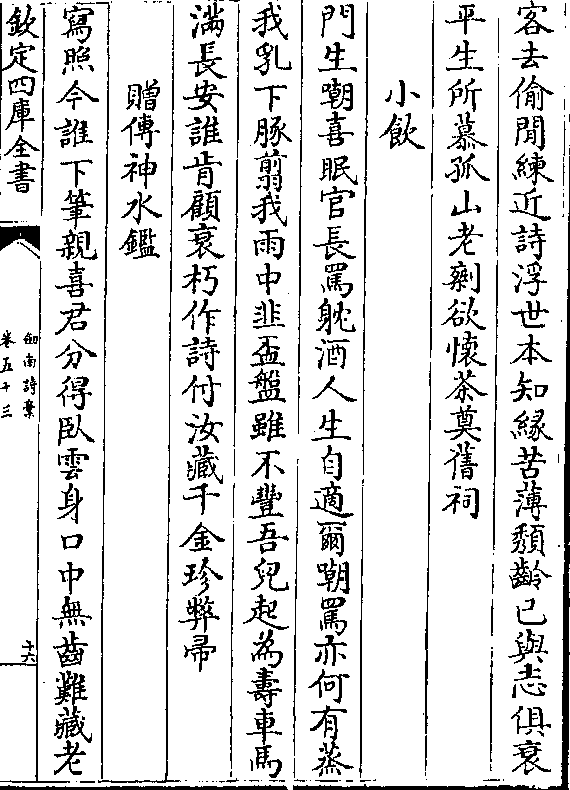 客去偷閒練近詩浮世本知緣苦薄頽齡已與志俱衰
平生所慕孤山老剩欲懷茶奠舊祠
小飲
門生嘲喜眠官長罵躭酒人生自適爾嘲罵亦何有蒸
我乳下豚翦我雨中韭盃盤雖不豐吾兒起為壽車馬
滿長安誰肯顧衰朽作詩付汝藏千金珍弊帚
贈傳神水鑑
寫照今誰下筆親喜君分得臥雲身口中無齒雖藏老
欽定四庫全書
劍南詩槀
卷五十三
十六